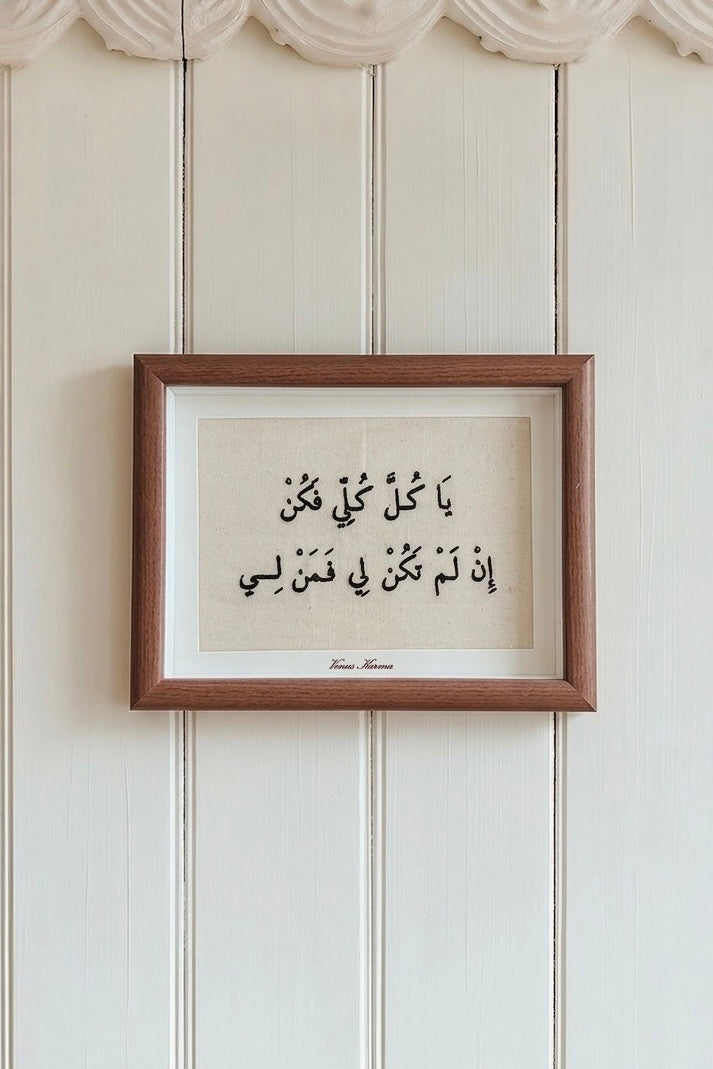 يَا كُلَّ كُلِّي فَكُنْ
إِنْ لَمْ تَكُنْ لِي فَمَنْ لِـي
Venus Karma